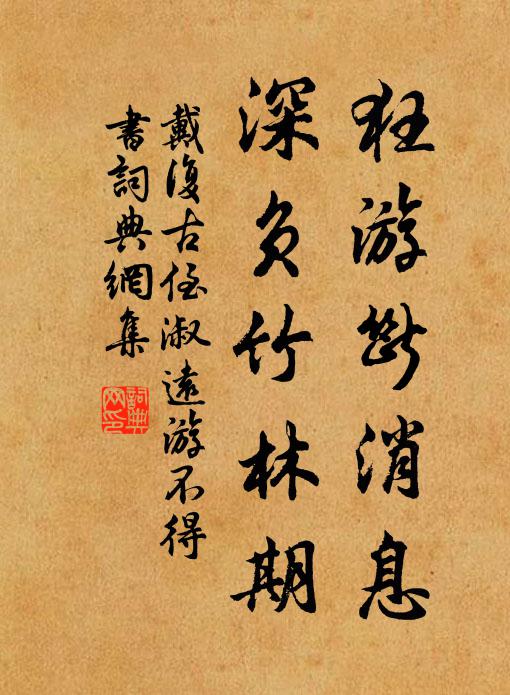 狂游断消息
深负竹林期
戴復古侄淑遠游不得
書詞典網集
詞典
网印